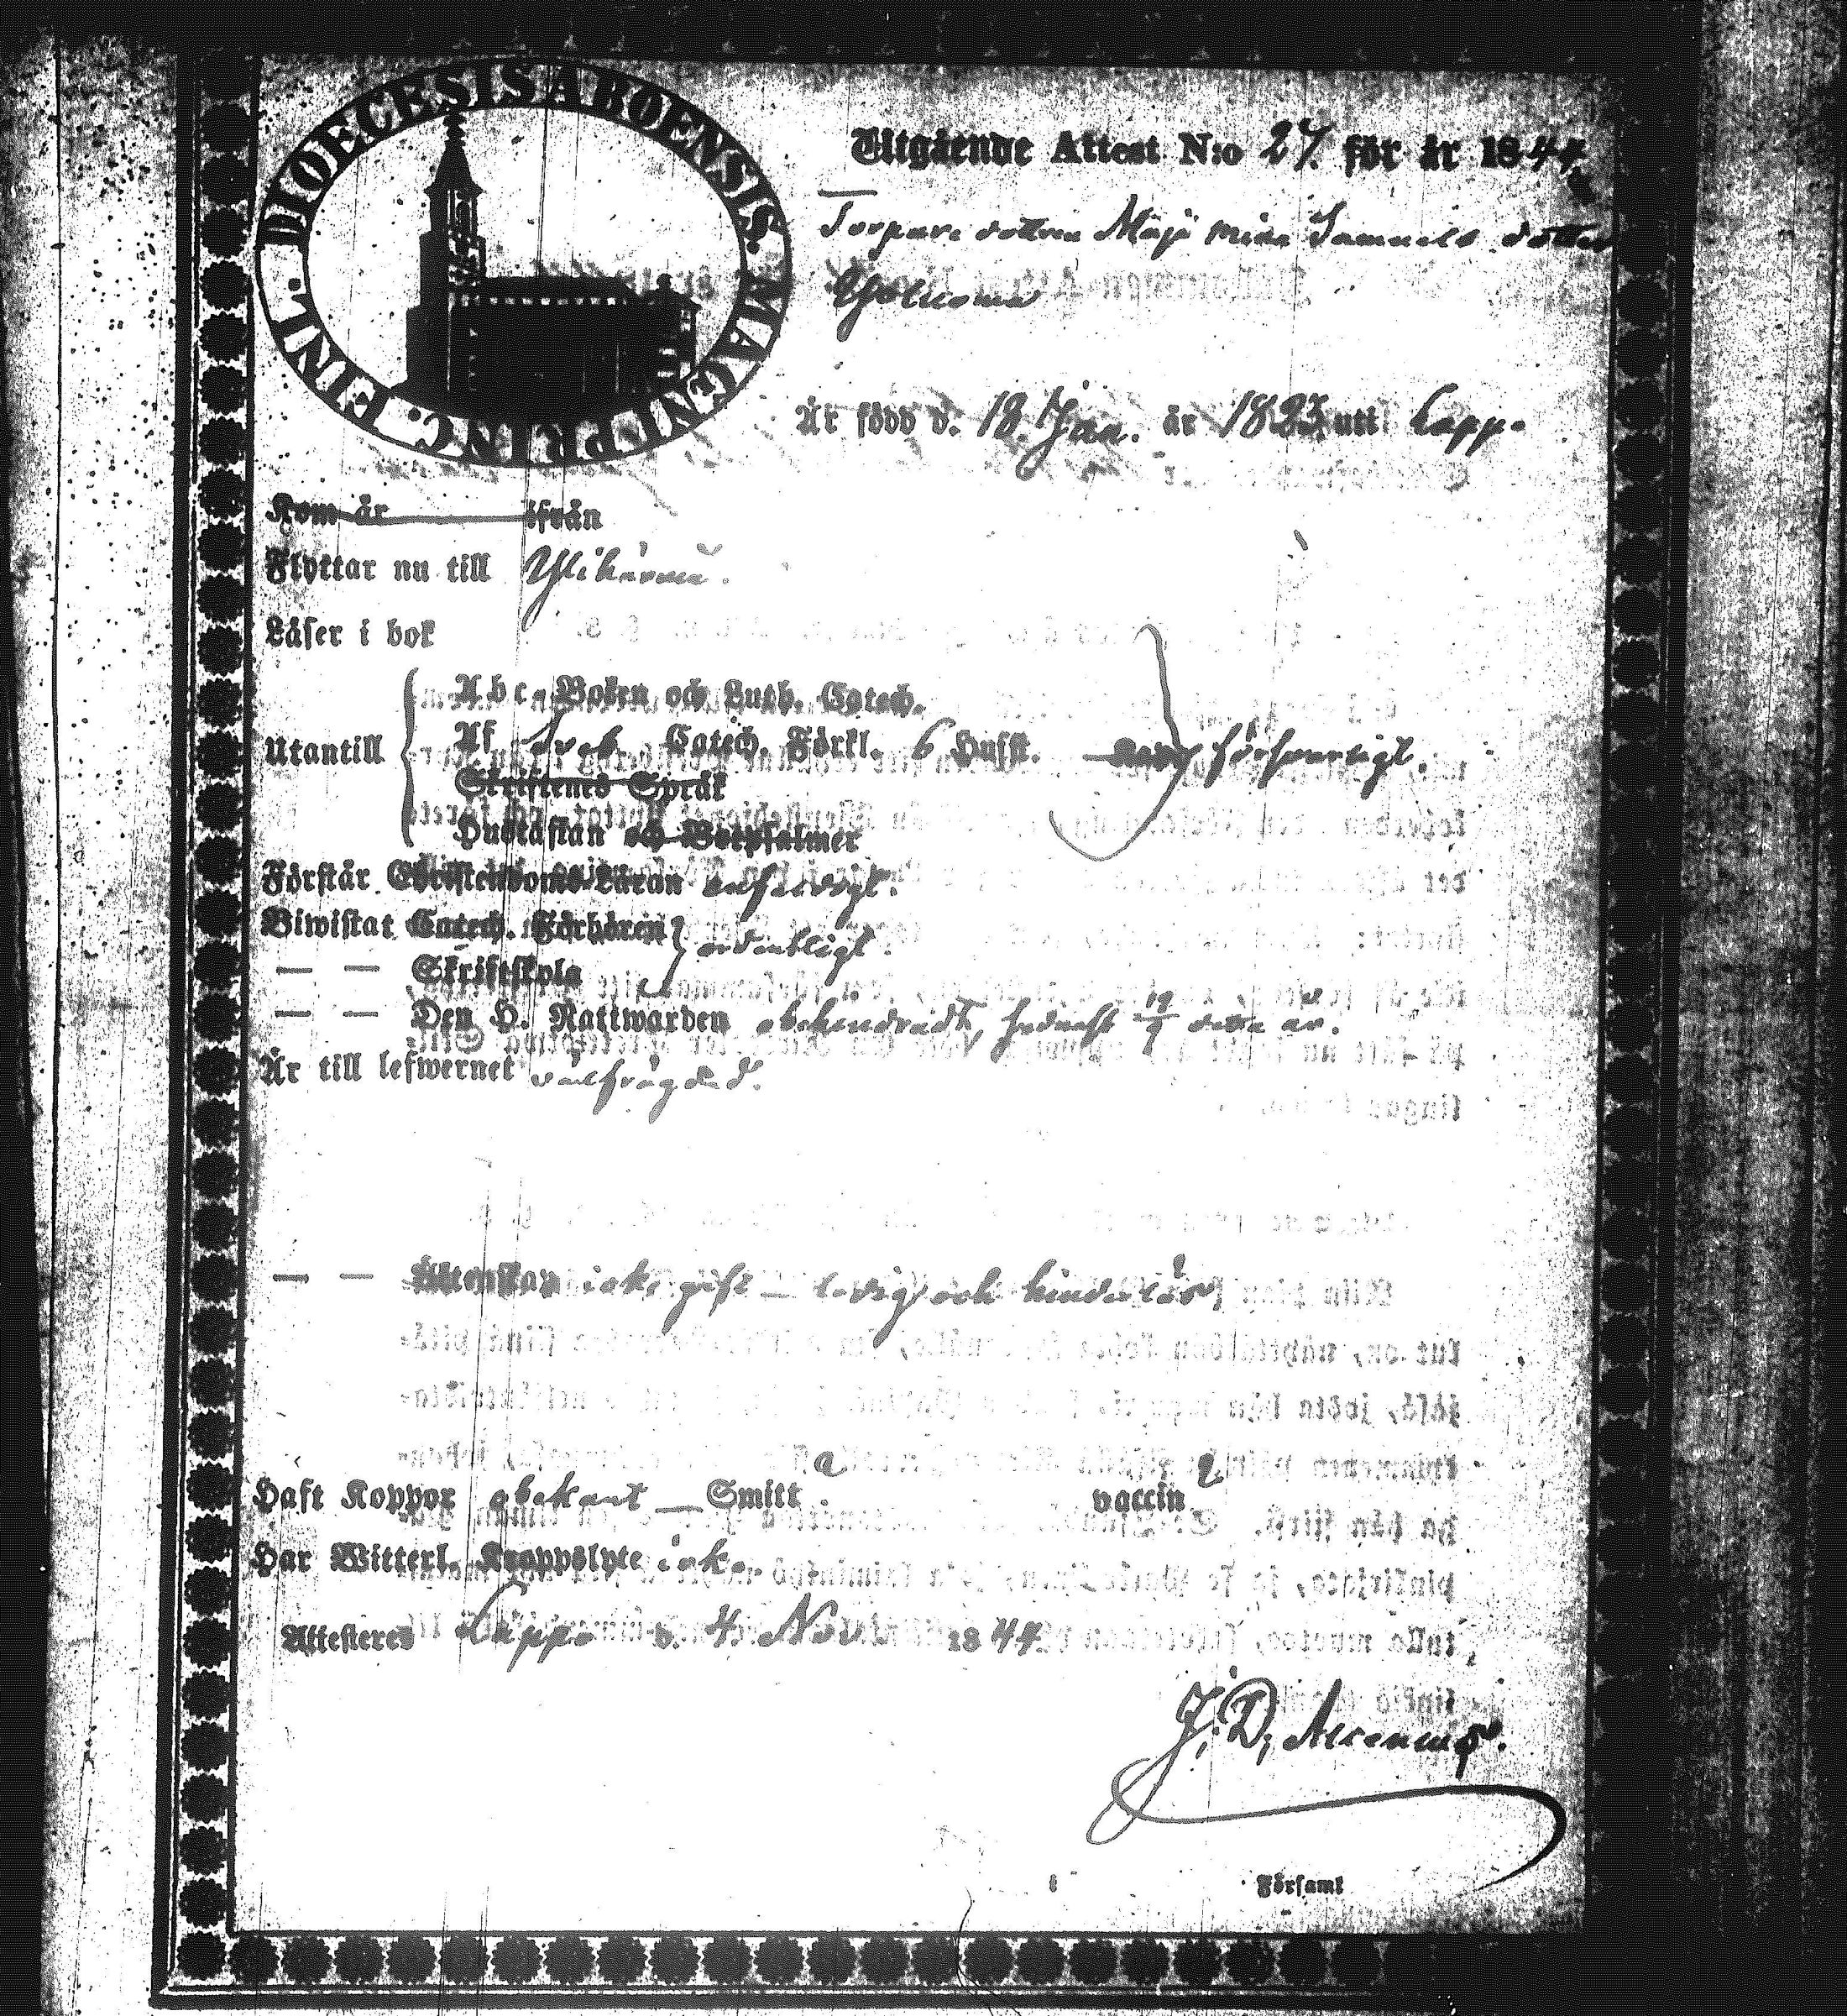 DIOECESIS ABOENSIS. MAGNI PRINC. FINL.
Utgående Attest N:o 27. för år 1844
Torpare dottren Maja Samuels dotter
Är född d. 18. Jan. år 1823 utti Lappo
Kom år ifrån
Flyttar nu till Ylihärmä.
Läser i bok
Abc-Boken och Luth. Catech.
Utantill Af Sveb. Catech. Förkl. 6 Hufst. försvarligt.
Skriftenes Språk
Hustaflan och Botpsalmer
Förstår Christendoms-Läran enfaldigt.
Biwistat Catech. Förhören ordentligt.
— — Skriftskola
— — Den H. Nattwarden obehindradt, sednast detta år.
Är till lefwernet välfrägdad.
— — Äktenskap icke gift — ledig och hinderlös
Haft Koppor obekant — Smitt vaccin
Har Witterl. Kroppslyte ick.
Attesteres Lappo d. 4. Nov. 1844.
J. D. Alcenius.
i Församl